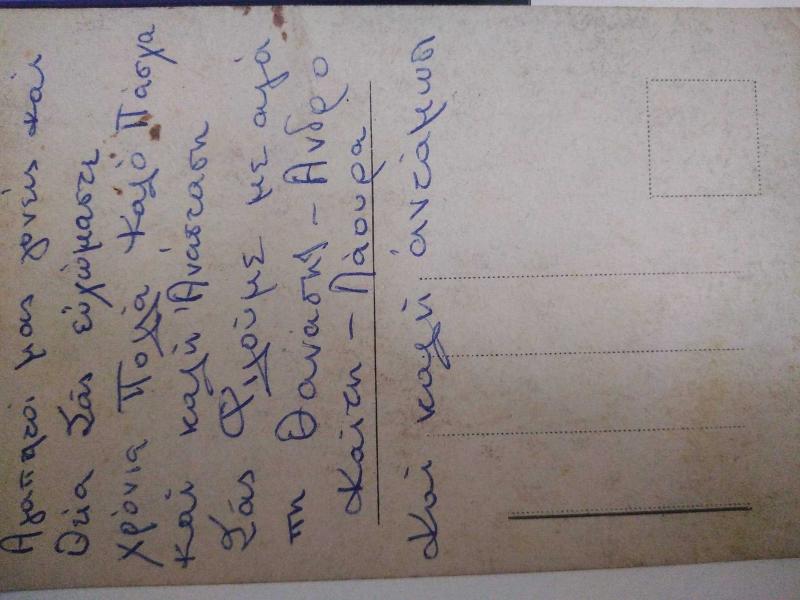 Αγαπητοί μας γονείς και
Θεία Σάς ευχώμαστε
χρόνια Πολλά καλό Πάσχα
και καλή Ανάσταση
Σάς Φιλούμε με αγά
πη Θανάσης - Ανδρο
Καίτη - Λάουρα
Και καλή άντάμωση